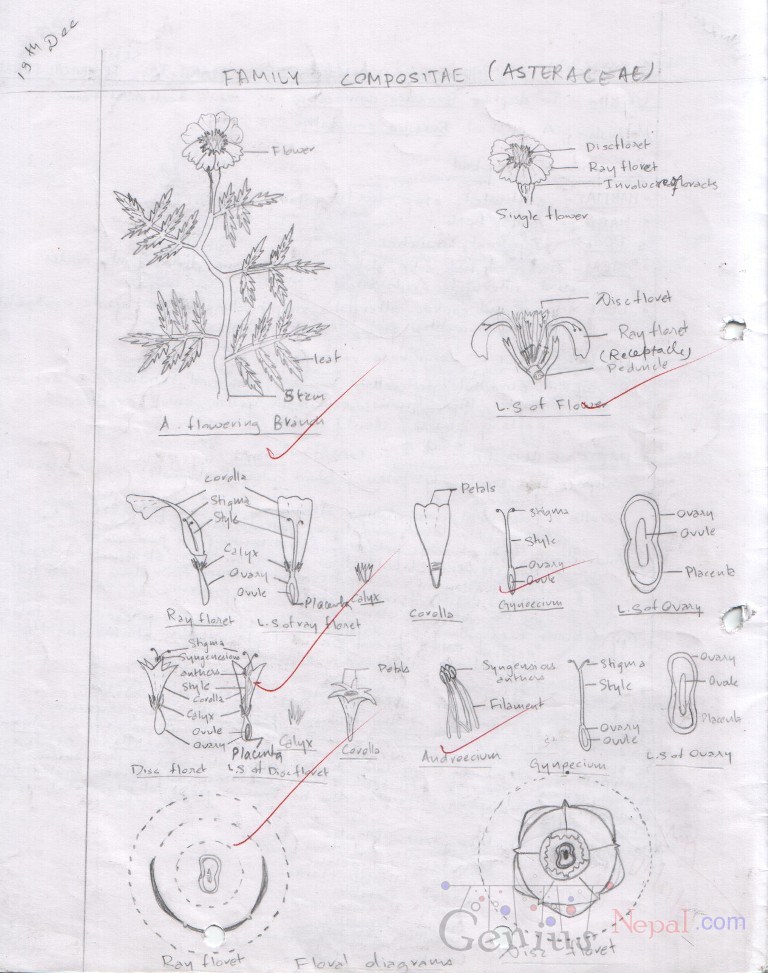 19th Dec
FAMILY COMPOSITAE (ASTERACEAE)
Flower
leaf
Stem
A flowering Branch
Discfloret
Rayfloret
Single flower
Discfloret
Rayfloret
(Receptacle)
Peduncle
L.S of Flower
Corolla
Stigma
Style
Calyx
Ovary
Ovule
Placenta
Ray floret
L.S of ray floret
Calyx
Petals
Corolla
Stigma
Style
Ovary
Ovule
Gynoecium
Ovary
Ovule
Placenta
L.S of Ovary
Stigma
anthers
Style
Corolla
Calyx
Ovule
Ovary
Placenta
Disc floret
L.S of Discfloret
Calyx
Petals
Corolla
anthers
Filament
Androecium
Stigma
Style
Ovary
Ovule
Gynoecium
Ovary
Ovule
Placenta
L.S of Ovary
Ray floret
Floral diagrams
Disc floret
Genius Nepal.com